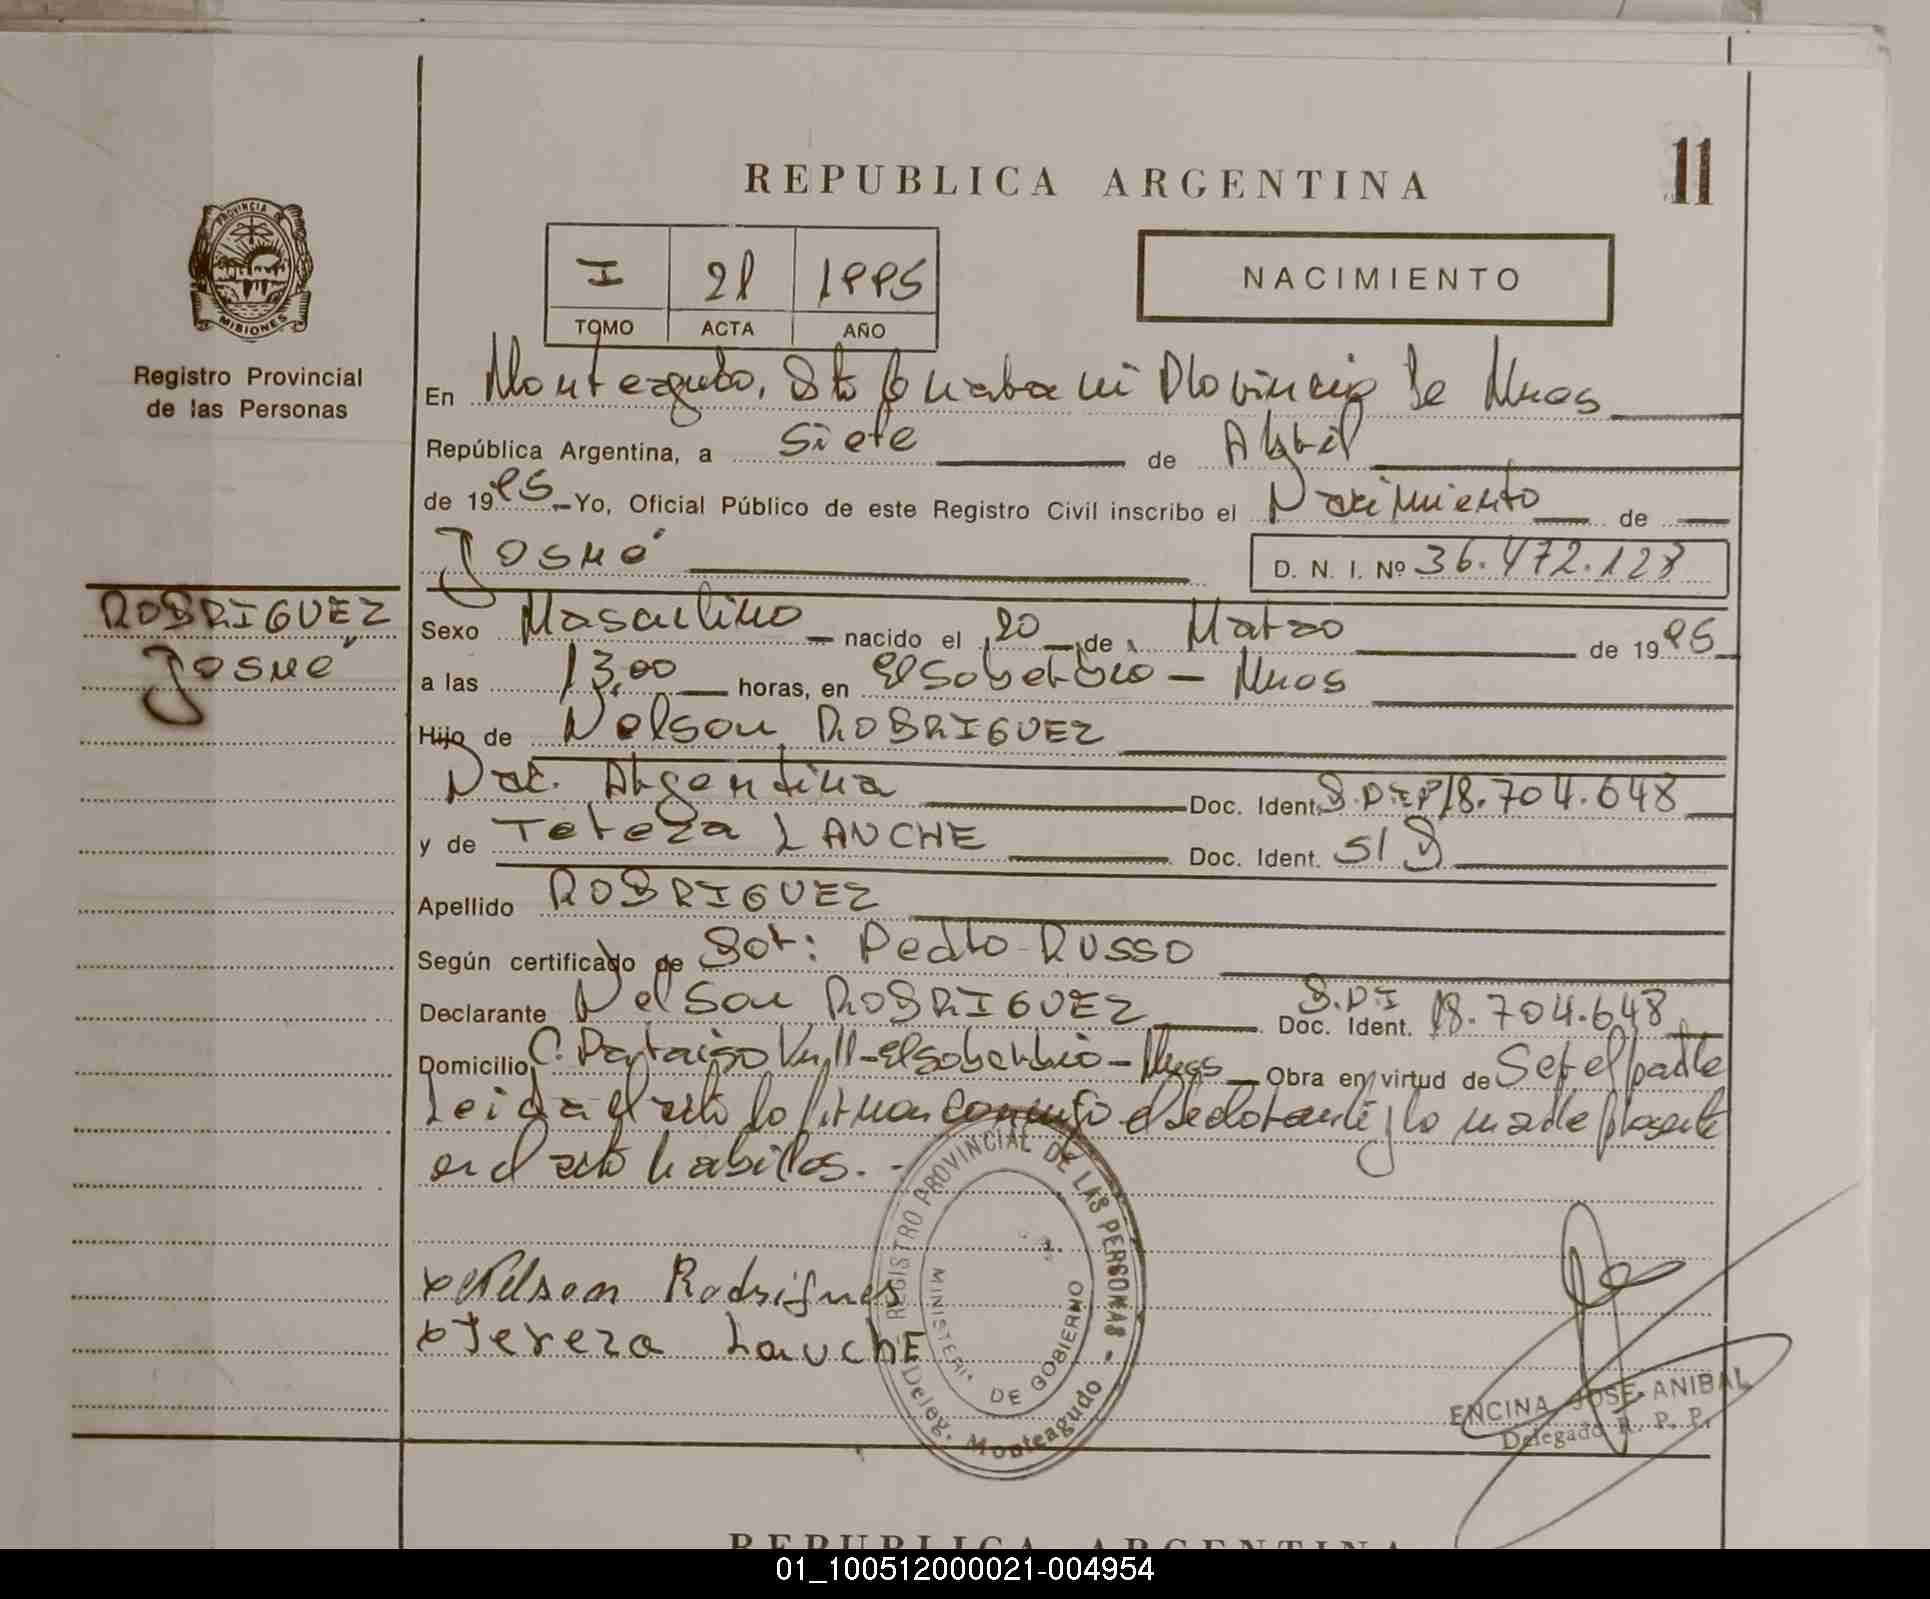 REPUBLICA ARGENTINA
11
PROVINCIA DE
MISIONES
Registro Provincial
de las Personas
I 21 1995
TOMO ACTA AÑO
NACIMIENTO
En Monteagudo, Dto Guarani Provincia de Mnes
República Argentina, a siete de Abril
de 1995 - Yo, Oficial Público de este Registro Civil inscribo el Nacimiento de
Josué
D. N. I. Nº 36.472.127
RODRIGUEZ
Josué
Sexo Masculino nacido el 20 de Marzo de 1995
a las 13,00 horas, en El Soberbio - Mnes
Hijo de Nelson RODRIGUEZ
Nac. Argentina Doc. Ident. 18.704.648
y de Tereza LAUCHE Doc. Ident. S/D
Apellido RODRIGUEZ
Según certificado de Dor: Pedro RUSSO
Declarante Nelson RODRIGUEZ Doc. Ident. D.N.I 18.704.648
Domicilio C. Paraiso - El Soberbio - Mnes Obra en virtud de Ser el padre
Leida el acta lo firman conmigo el declarante y la madre presente
en el acto habiles. -
x Nelson Rodrigues
x Tereza Lauche
REGISTRO PROVINCIAL DE LAS PERSONAS -
MINISTERIO DE GOBIERNO
Deleg. Monteagudo
ENCINA JOSE ANIBAL
Delegado R. P. P.
REPUBLICA ARGENTINA
01_100512000021-004954